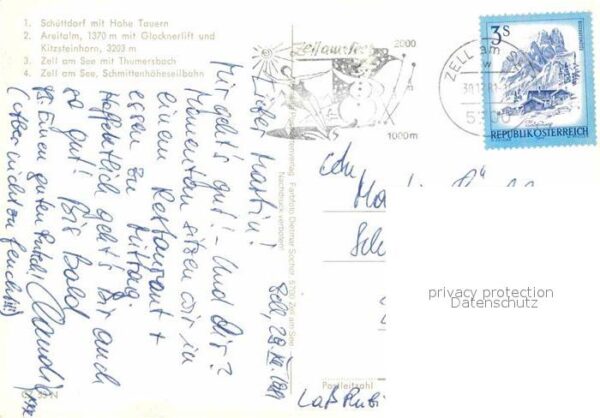 1. Schüttdorf mit Hohe Tauern
2. Areitalm, 1370 m mit Glocknerlift und
Kitzsteinhorn, 3203 m
3. Zell am See mit Thumersbach
4. Zell am See, Schmittenhöheseilbahn
Zell am See
2000
1000m
ZELL am
30.12.81
5700
3S
REPUBLIK ÖSTERREICH
Zell, 29.XII.1981
Lieber Martin!
Mir geht's gut! - Und Dir?
Momentan sitzen wir in
einem Restaurant +
essen zu Mittag.
Hoffentlich geht's Dir auch
so gut! Bis Bald
Claudia
PS. Einen guten Rutsch!
(aber nicht zu feucht!!!)
Farbfoto Dietmar Sochor 5700 Zell am See
Nachdruck verboten!
Postleitzahl
privacy protection
Datenschutz